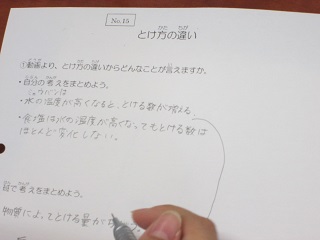 No.15
とけ方の違い
①動画より、とけ方の違いからどんなことが言えますか。
・自分の考えをまとめよう。
ミョウバンは
・水の温度が高くなると、とける数が増える。
・食塩は水の温度が高くなってもとける数は
ほとんど変化しない。
班で考えをまとめよう。
物質によってとける量が